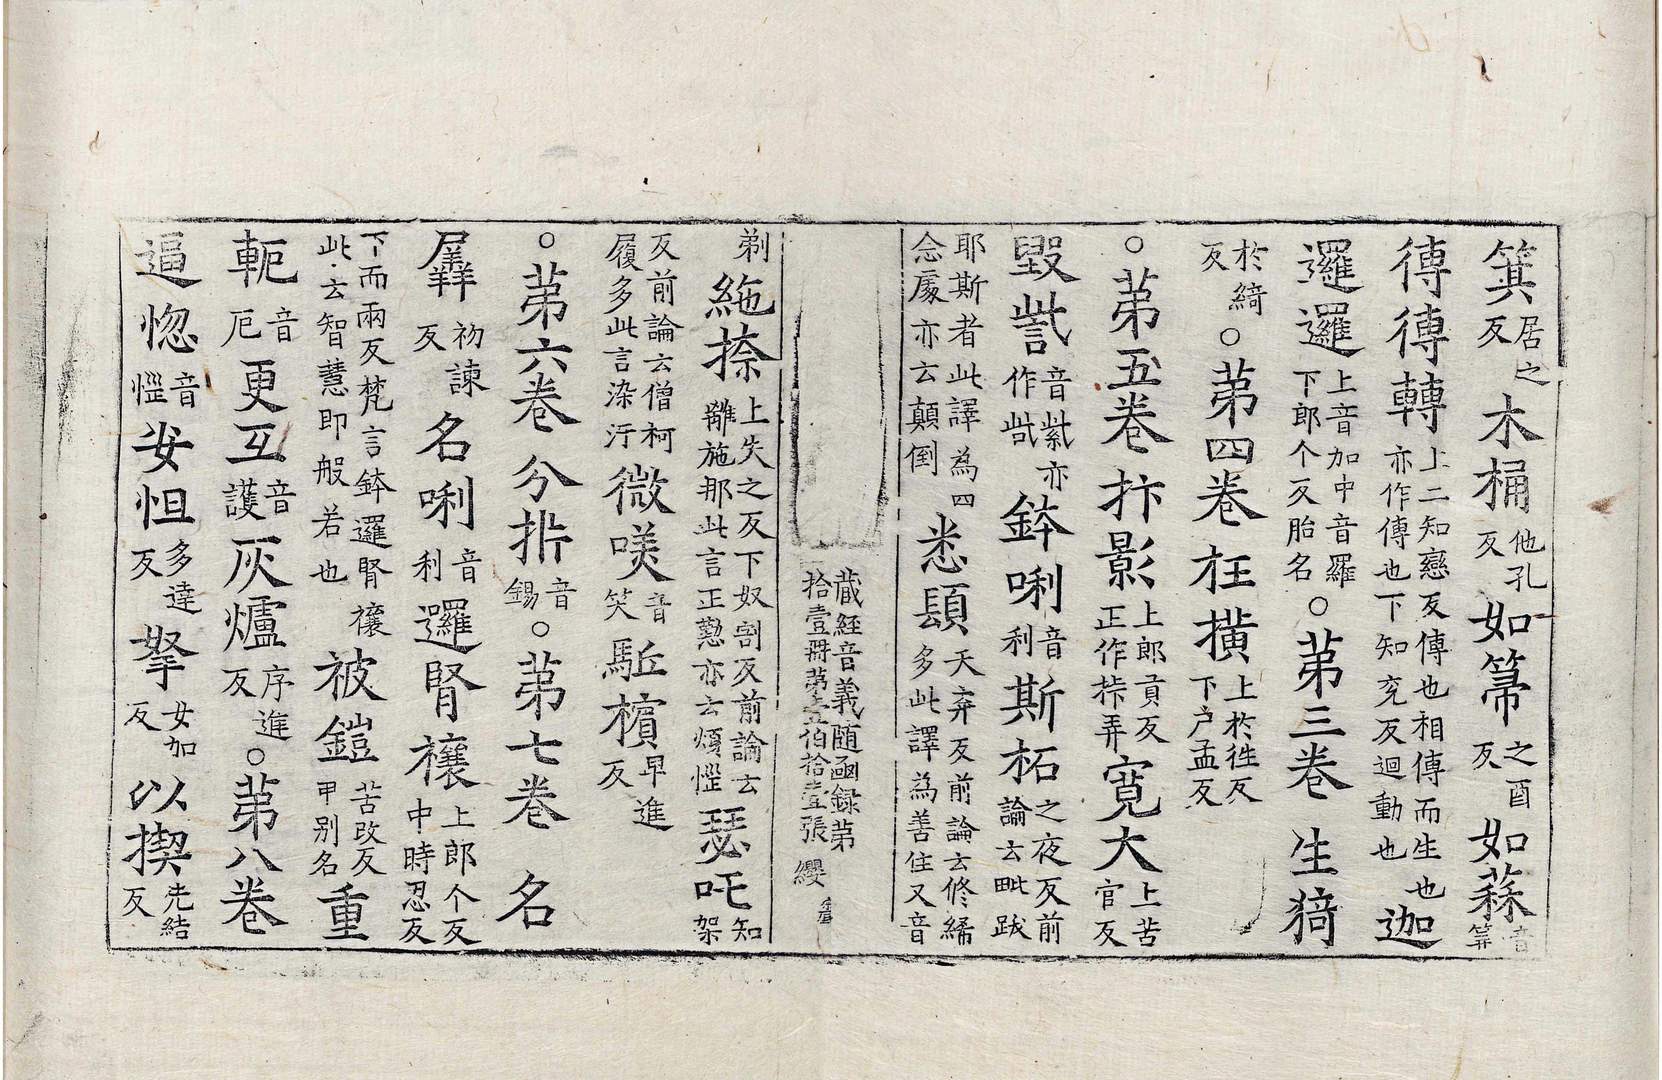 箕居之反木桶他孔反如箒之酉反如蒜音筭
傳傳轉上二知戀反傳也相傳而生也亦作傳也下知兖反迴動也迦
邏邏上音加中音羅下郎个反胎名○苐三卷生猗
於綺反○苐四卷枉撗上於徃反下户孟反
○苐五卷抃影上郎貢反正作挊弄寛大上苦官反
毀訿音紫亦作呰鉢唎音利斯柘之夜反前論云毗跋
耶斯者此譯為四念處亦云顛倒悉䫙天弃反前論云修絺多此譯為善住又音
藏經音義随函録苐拾壹冊苐五伯拾壹張 纓
剃絁捺上失之反下奴割反前論云離施那此言正懃亦云煩惱瑟吒知架
反前論云僧柯履多此言染汙微𠸍音笑駈檳早進反
○苐六卷分㭊音錫○苐七卷名
羼初諫反名唎音利邏腎禳上郎个反中時忍反
下而兩反梵言鉢邏腎禳此云智慧即般若也被鎧苦改反甲别名重
軛音厄更互音護灰爐序進反○苐八卷
逼惚音惱妛怛多達反拏女加反以揳先結反